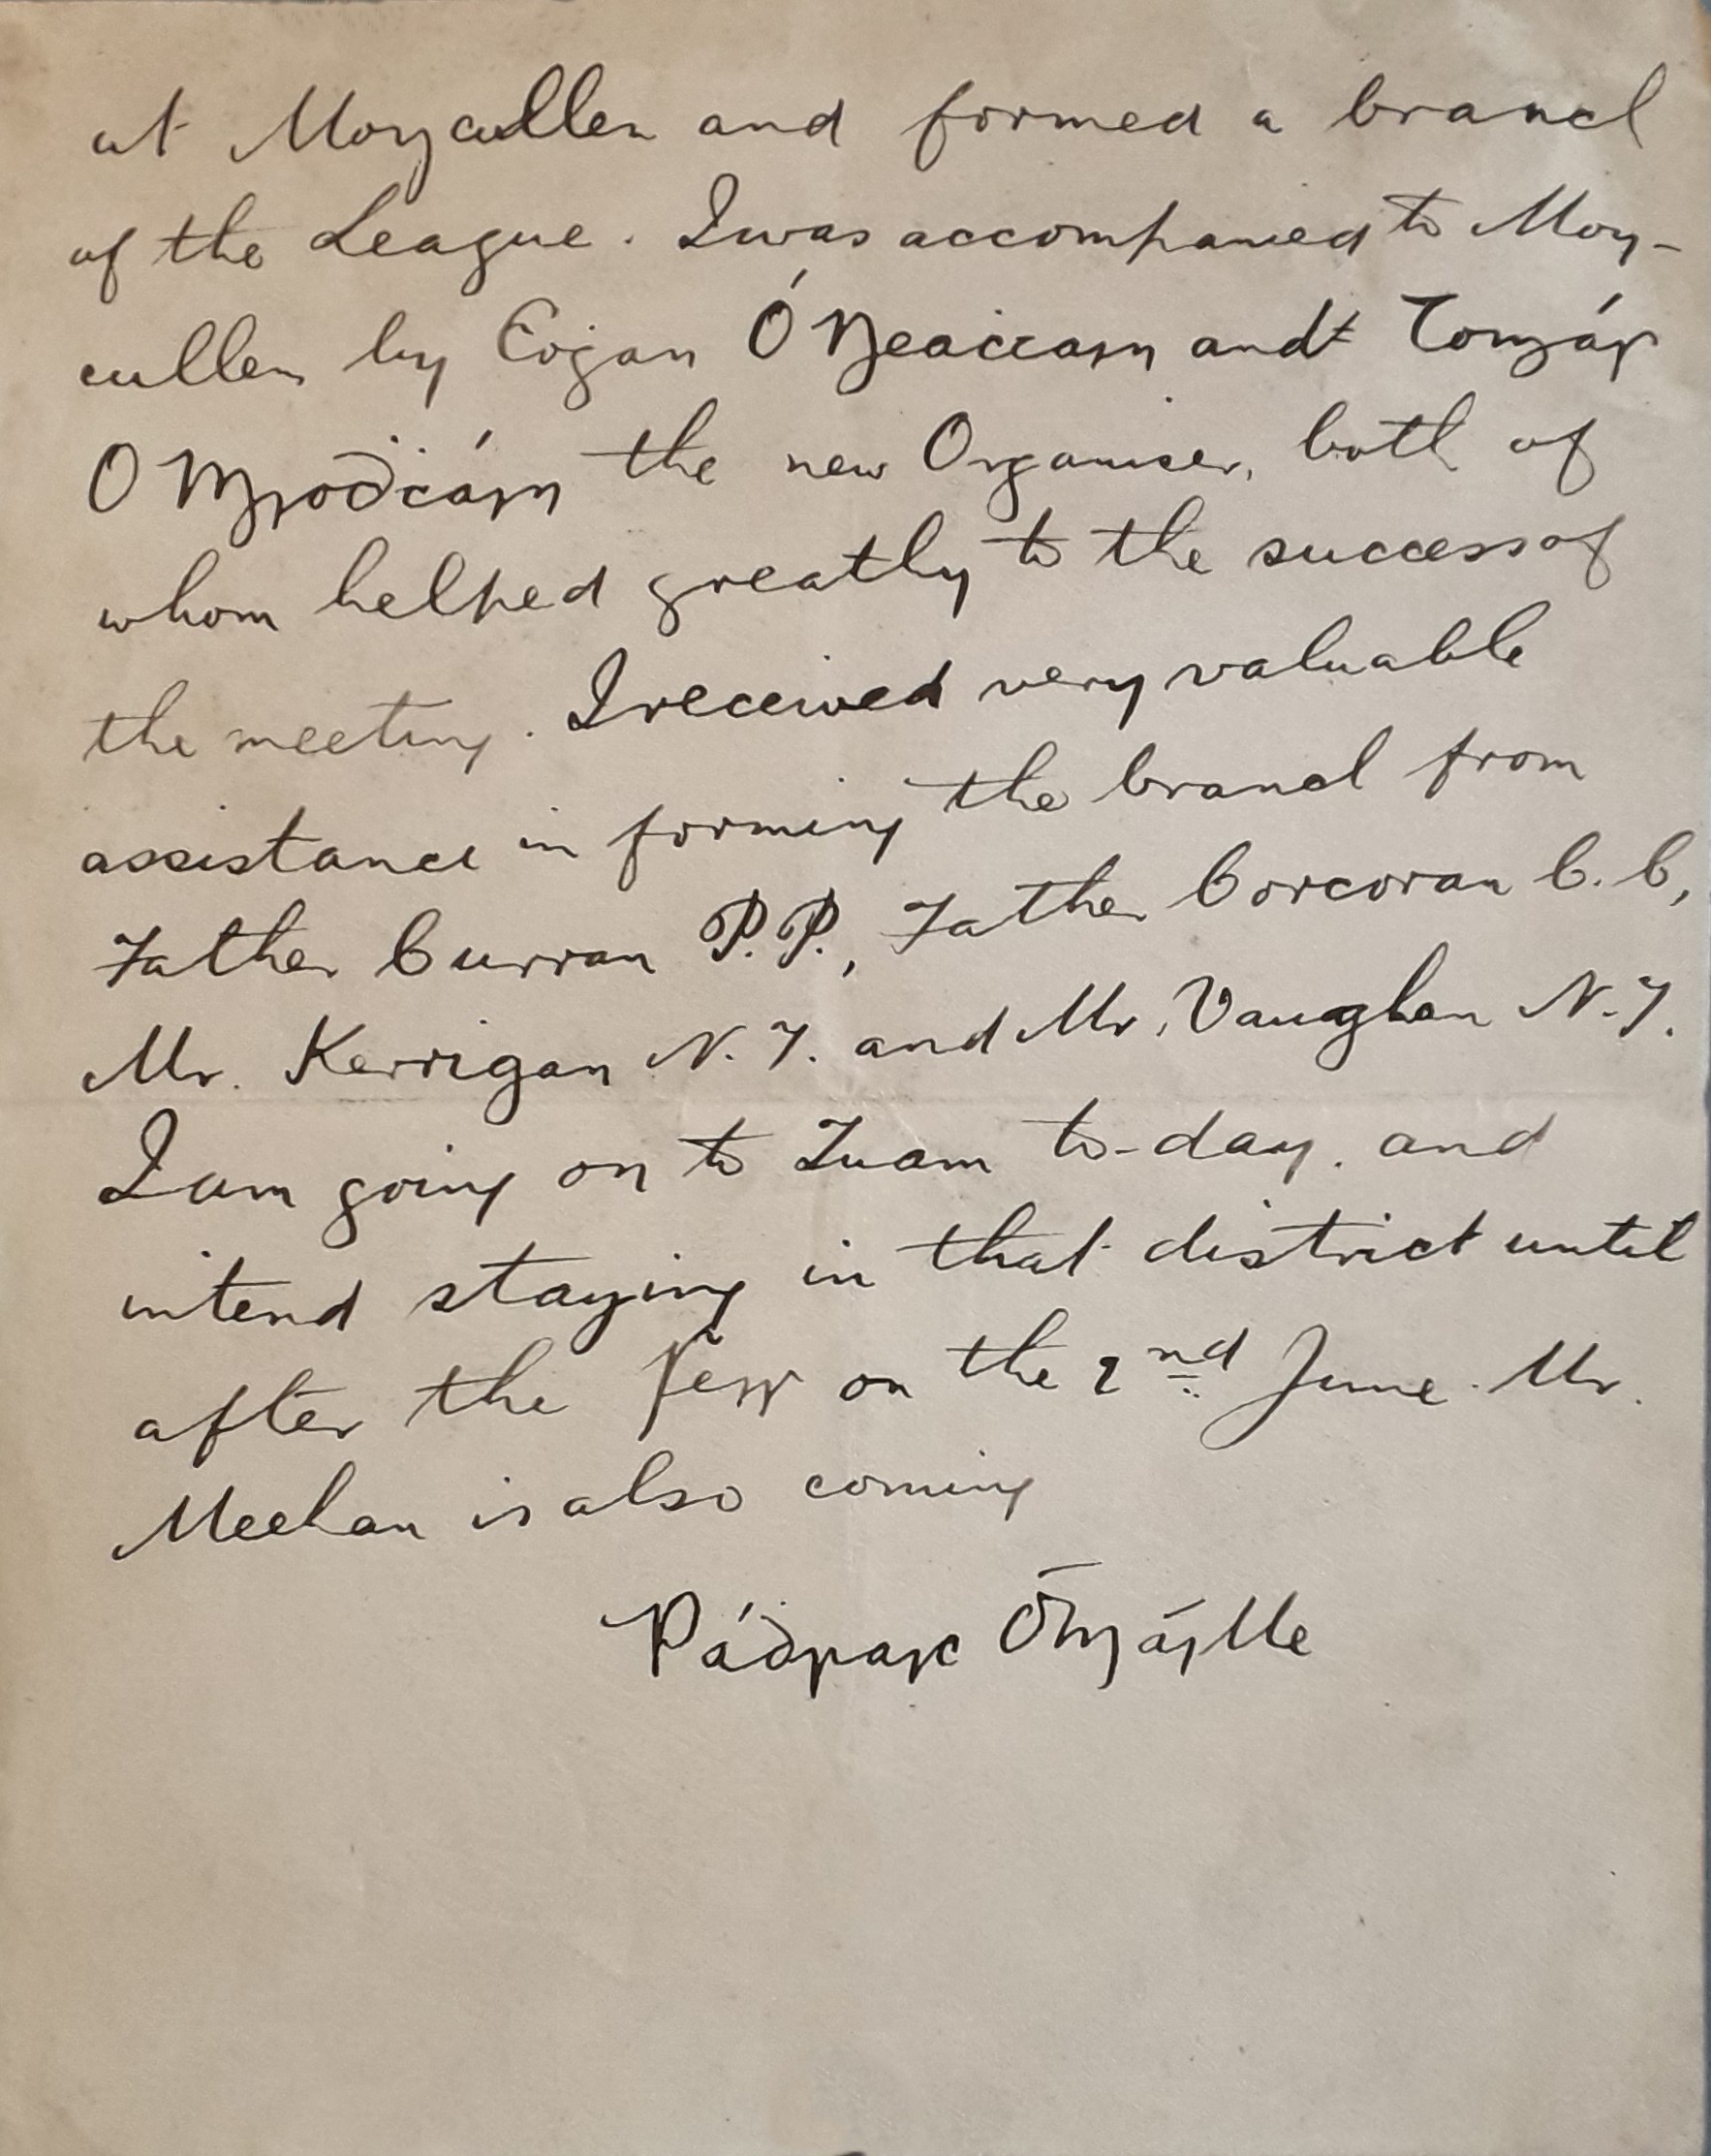 at Moycullen and formed a branch
of the League. I was accompanied to Moy-
cullen by Eoġan Ó Neaċtain and Tomás
Ó the new Organiser, both of
whom helped greatly to the success of
the meeting. I received very valuable
assistance in forming the branch from
Father Curran P.P., Father Corcoran C.C,
Mr. Kerrigan N.T. and Mr. Vaughan N.T.
I am going on to Tuam to-day. and
intend staying in that district until
after the Feis on the 2nd June. Mr.
Meehan is also coming
Pádraic Ó Máille